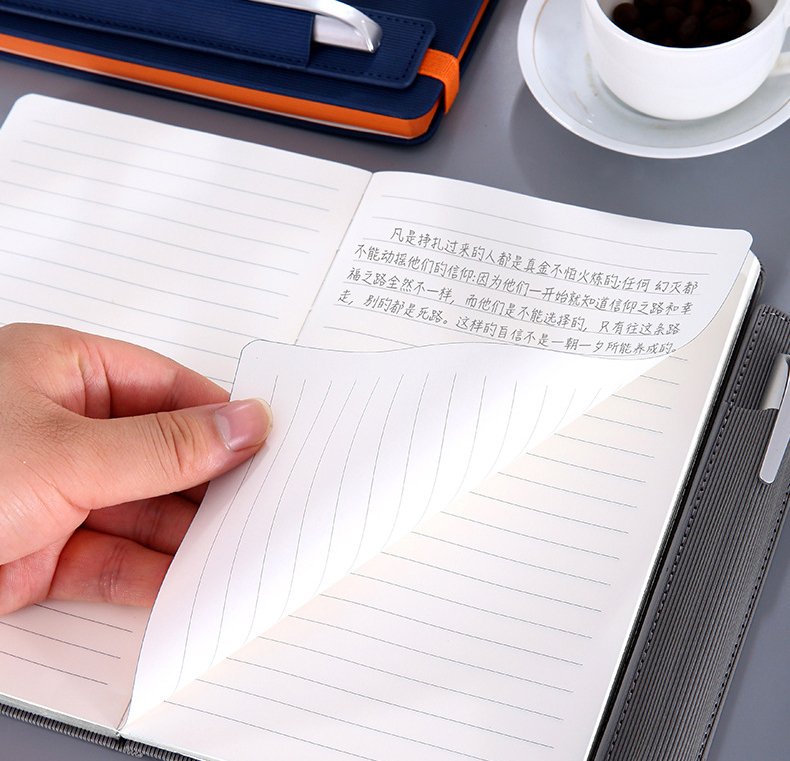 凡是挣扎过来的人都是真金不怕火炼的;任何 幻灭都
不能动摇他们的信仰:因为他们一开始就知道信仰之路和幸
福之路全然不一样，而他们是不能选择的，只有往这条路
走，别的都是死路。这样的自信不是一朝一夕所能养成的。